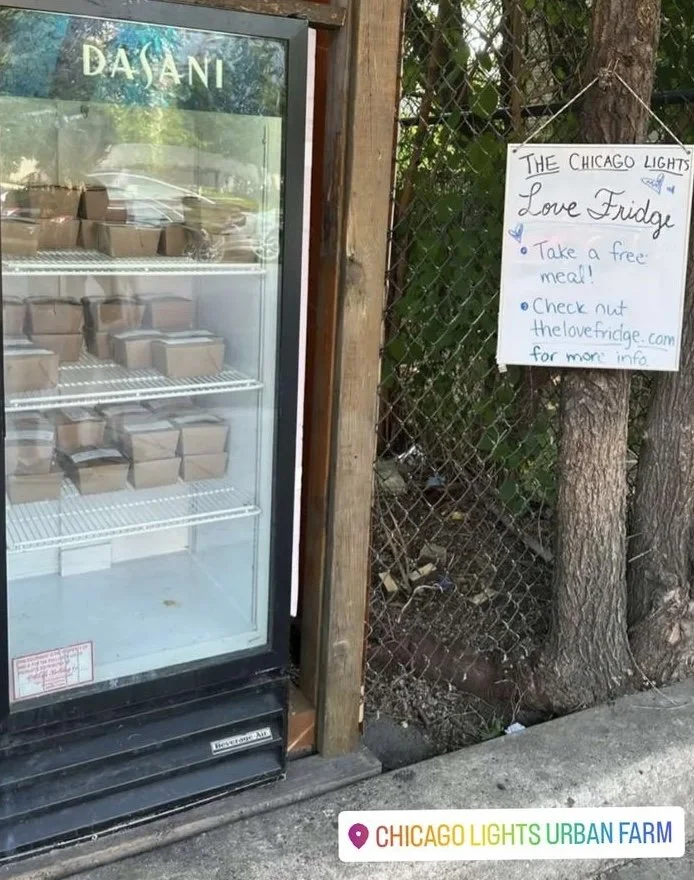 DASANI
THE CHICAGO LIGHTS
Love Fridge
• Take a free
meal!
• Check out
thelovefridge.com
for more info
Beverage Air
CHICAGO LIGHTS URBAN FARM